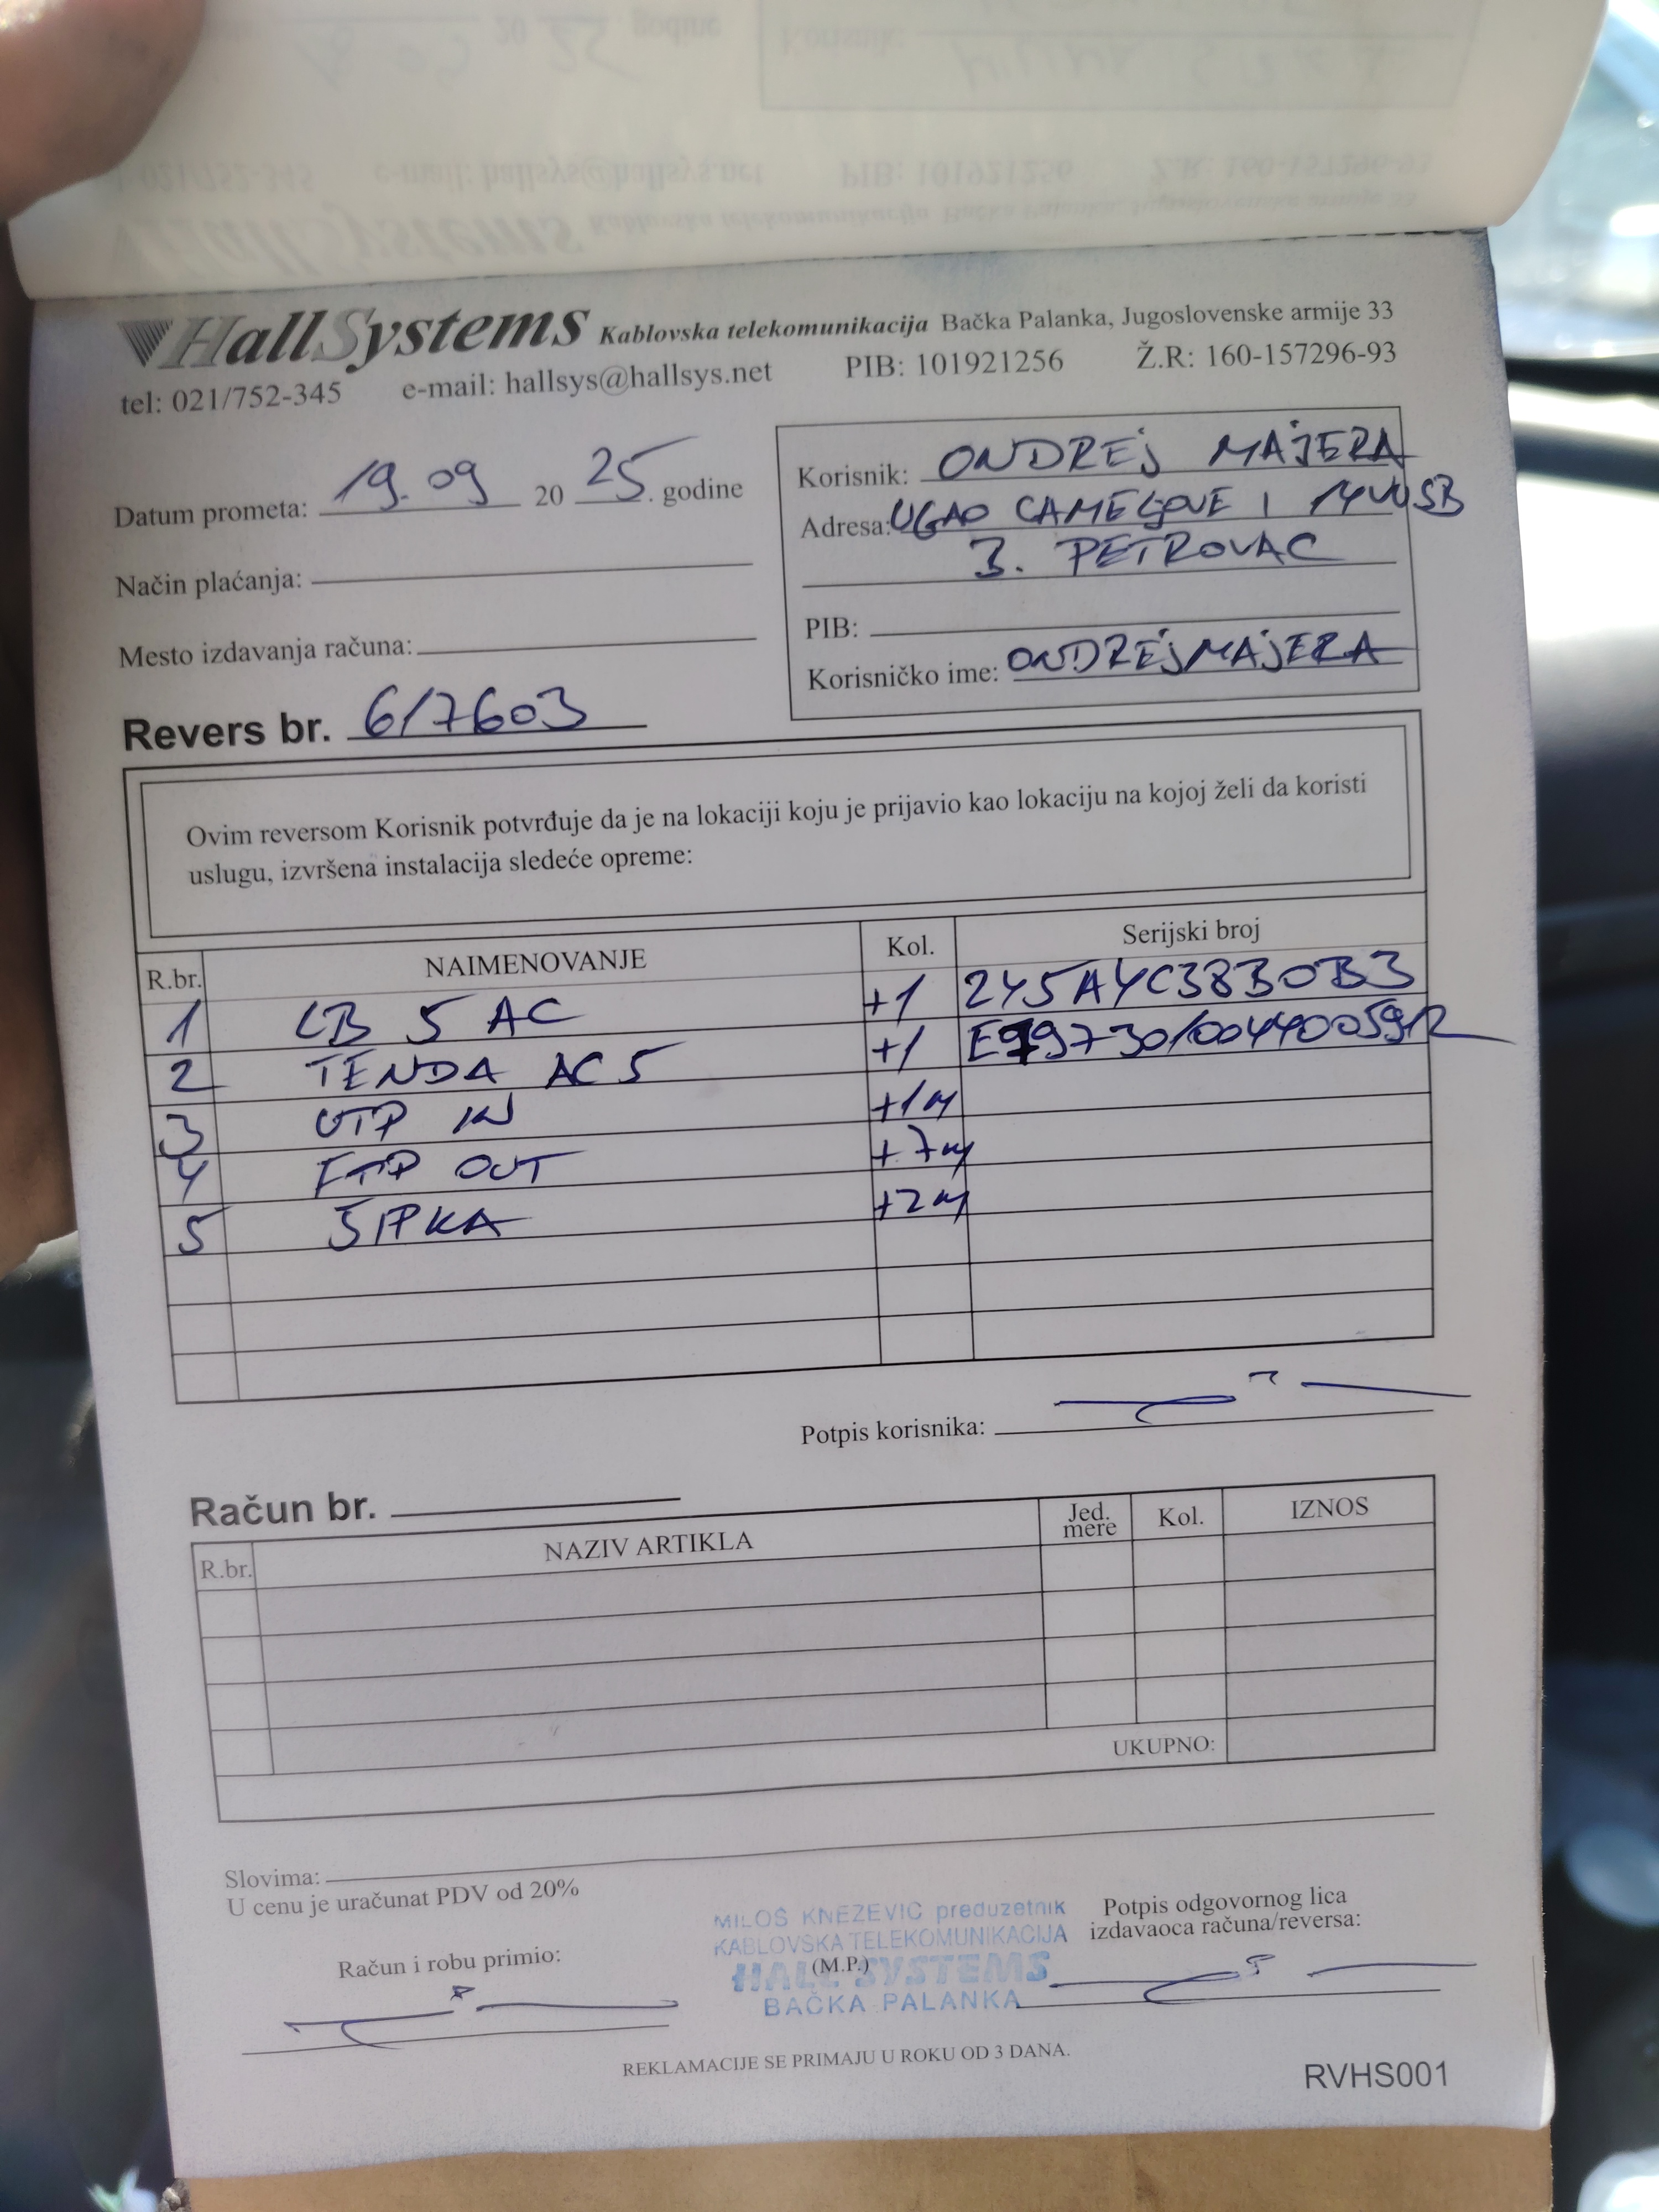 HallSystems Kablovska telekomunikacija Bačka Palanka, Jugoslovenske armije 33
tel: 021/752-345 e-mail: hallsys@hallsys.net PIB: 101921256 Ž.R: 160-157296-93
Datum prometa: 19.09 20 25. godine
Način plaćanja:
Mesto izdavanja računa:
Revers br. 6/7603
Korisnik: ONDREJ MAJERA
Adresa: UGAO I 14VUSB
PETROVAC
PIB:
Korisničko ime: ONDREJMAJERA
Ovim reversom Korisnik potvrđuje da je na lokaciji koju je prijavio kao lokaciju na kojoj želi da koristi
uslugu, izvršena instalacija sledeće opreme:
R.br. NAIMENOVANJE Kol. Serijski broj
1 LB 5 AC +1 245A4C38B0B3
2 TENDA AC5 +1
3 UTP IN +1m
4 FTP OUT +7m
5 ŠIPKA +2m
Potpis korisnika:
Račun br.
R.br. NAZIV ARTIKLA Jed. mere Kol. IZNOS
UKUPNO:
Slovima:
U cenu je uračunat PDV od 20%
Račun i robu primio:
MILOŠ KNEŽEVIĆ preduzetnik
KABLOVSKA TELEKOMUNIKACIJA
(M.P.)
HALL SYSTEMS
BAČKA PALANKA
Potpis odgovornog lica
izdavaoca računa/reversa:
REKLAMACIJE SE PRIMAJU U ROKU OD 3 DANA.
RVHS001